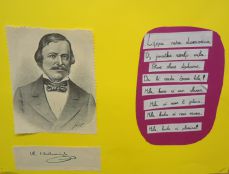 Lijepa naša domovino,
Oj junačka zemljo mila,
Stare slave djedovino,
Da bi vazda bila!
Mila, kano si nam slavna,
Mila si nam ti jedina,
Mila, kuda si nam ravna,
Mila, kuda si planina!